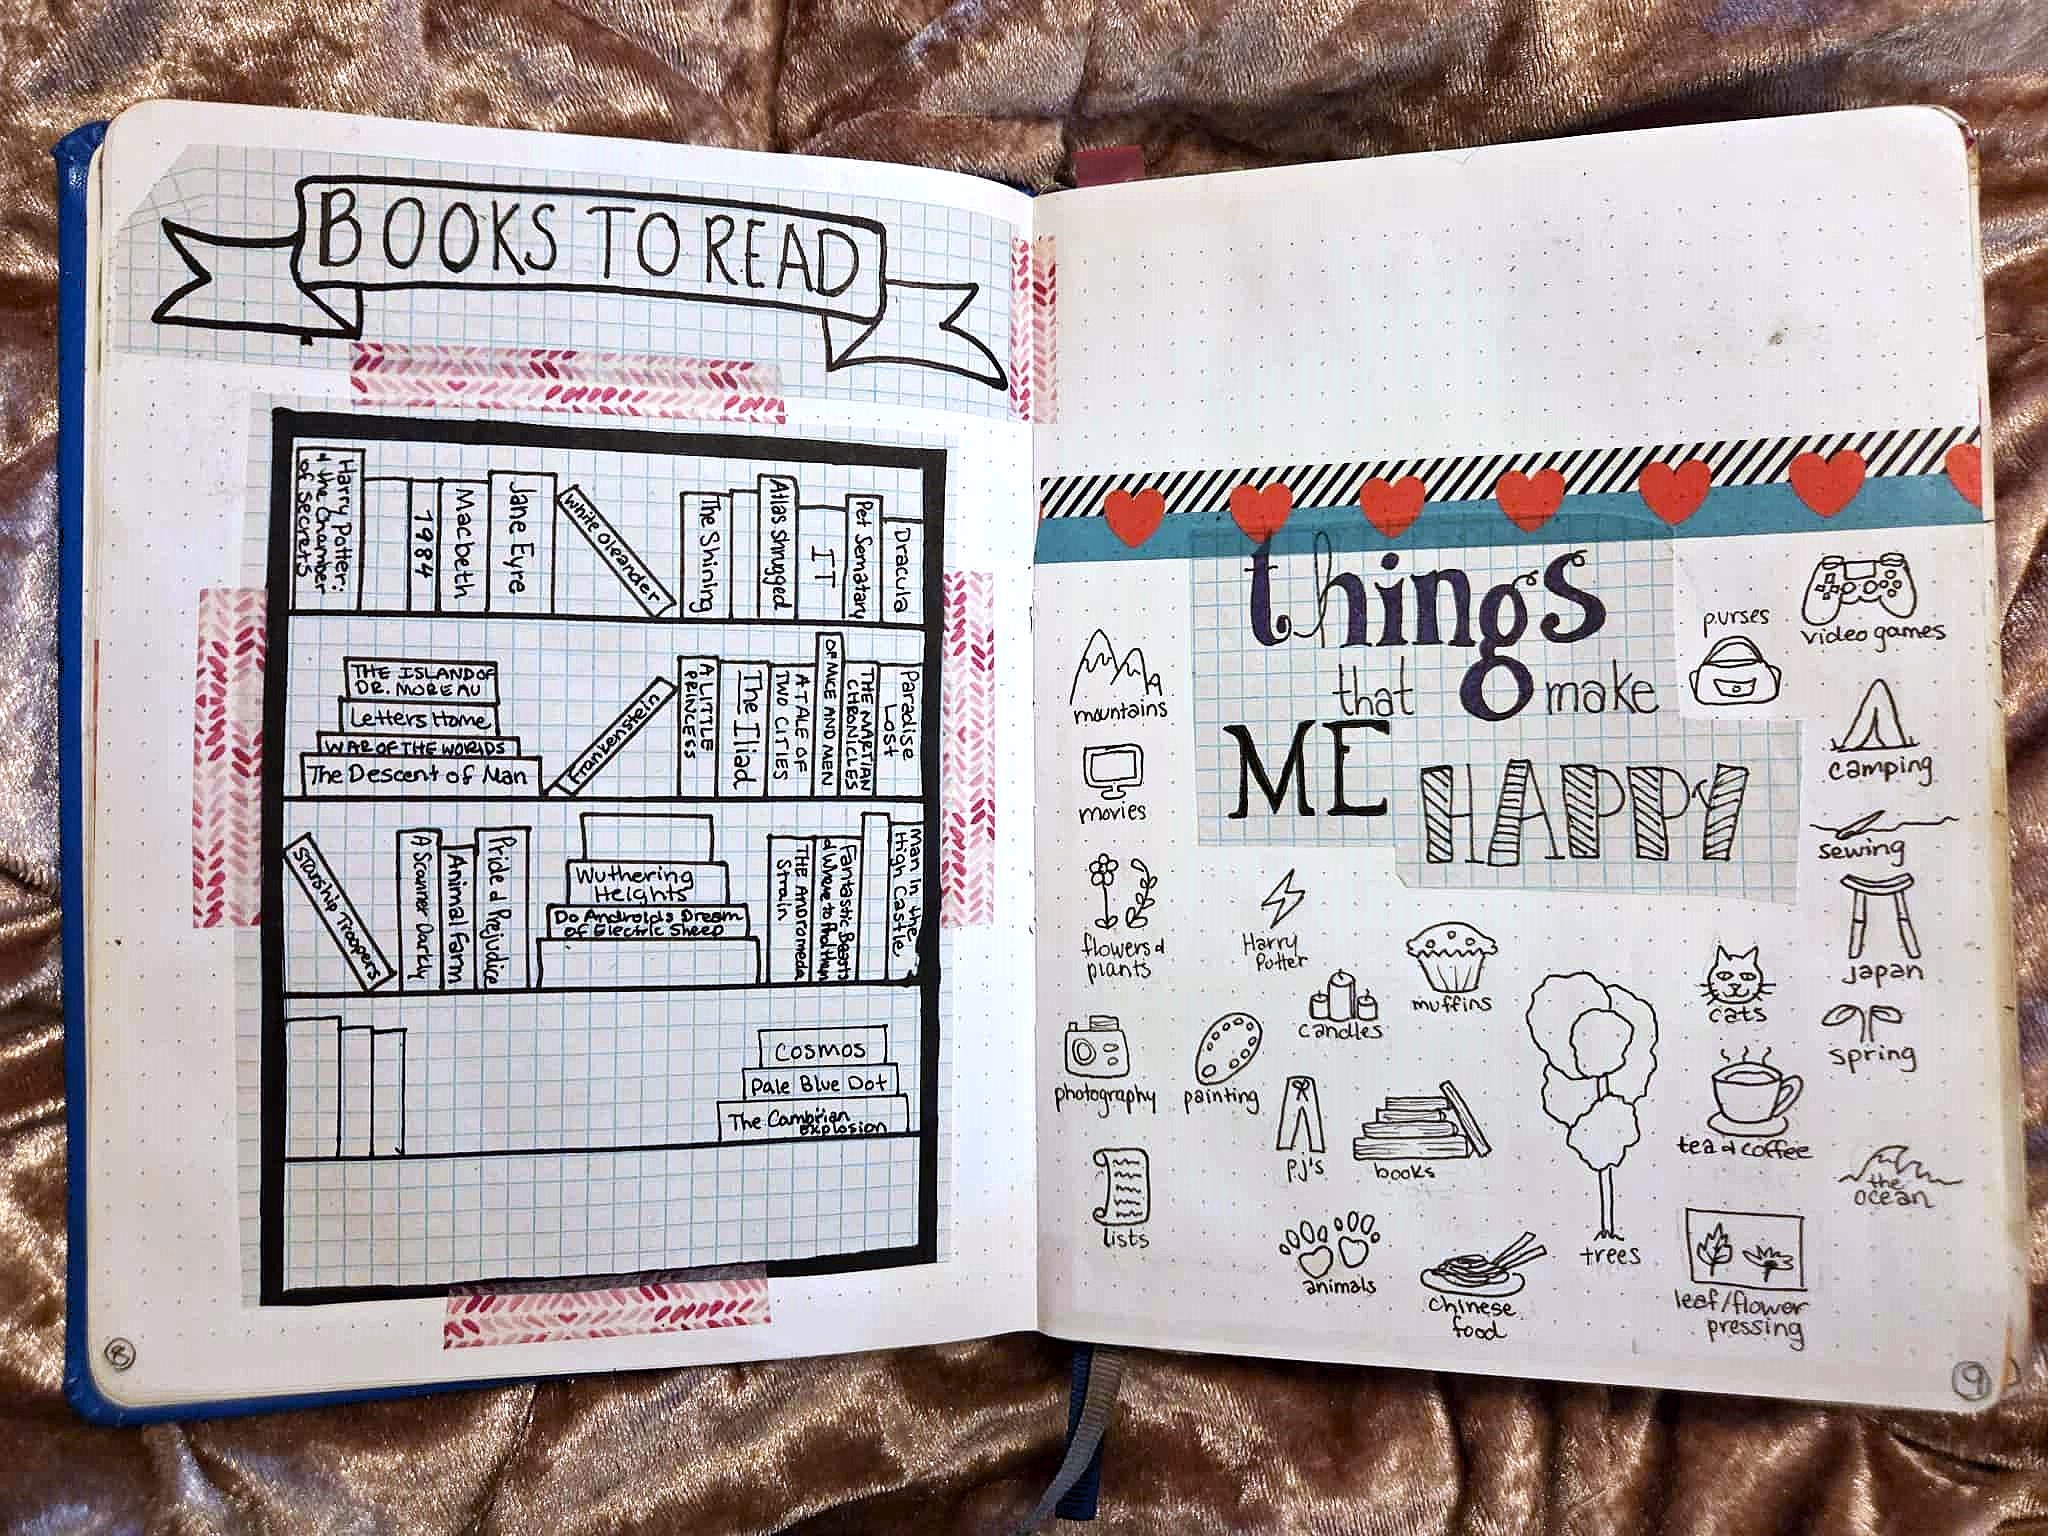 BOOKS TO READ
Harry Potter:
& the Chamber
of Secrets
1984
Macbeth
Jane Eyre
White Oleander
The Shining
Atlas Shrugged
IT
Pet Sematary
Dracula
THE ISLAND OF
DR. MOREAU
Letters Home
WAR OF THE WORLDS
The Descent of Man
Frankenstein
A LITTLE
PRINCESS
The Iliad
A TALE OF
TWO CITIES
OF MICE AND MEN
THE MARTIAN
CHRONICLES
Paradise
Lost
Starship Troopers
A Scanner Darkly
Animal Farm
Pride & Prejudice
Wuthering
Heights
Do Androids Dream
of Electric Sheep
THE ANDROMEDA
Strain
Fantastic Beasts
& Where to Find them
Man in the
High Castle
Cosmos
Pale Blue Dot
The Cambrian
Explosion
8
things
that make
ME HAPPY
purses
video games
mountains
camping
movies
sewing
flowers &
plants
Harry
Potter
muffins
candles
cats
Japan
spring
photography
painting
PJ's
books
tea & coffee
the
ocean
lists
trees
animals
chinese
food
leaf/flower
pressing
9